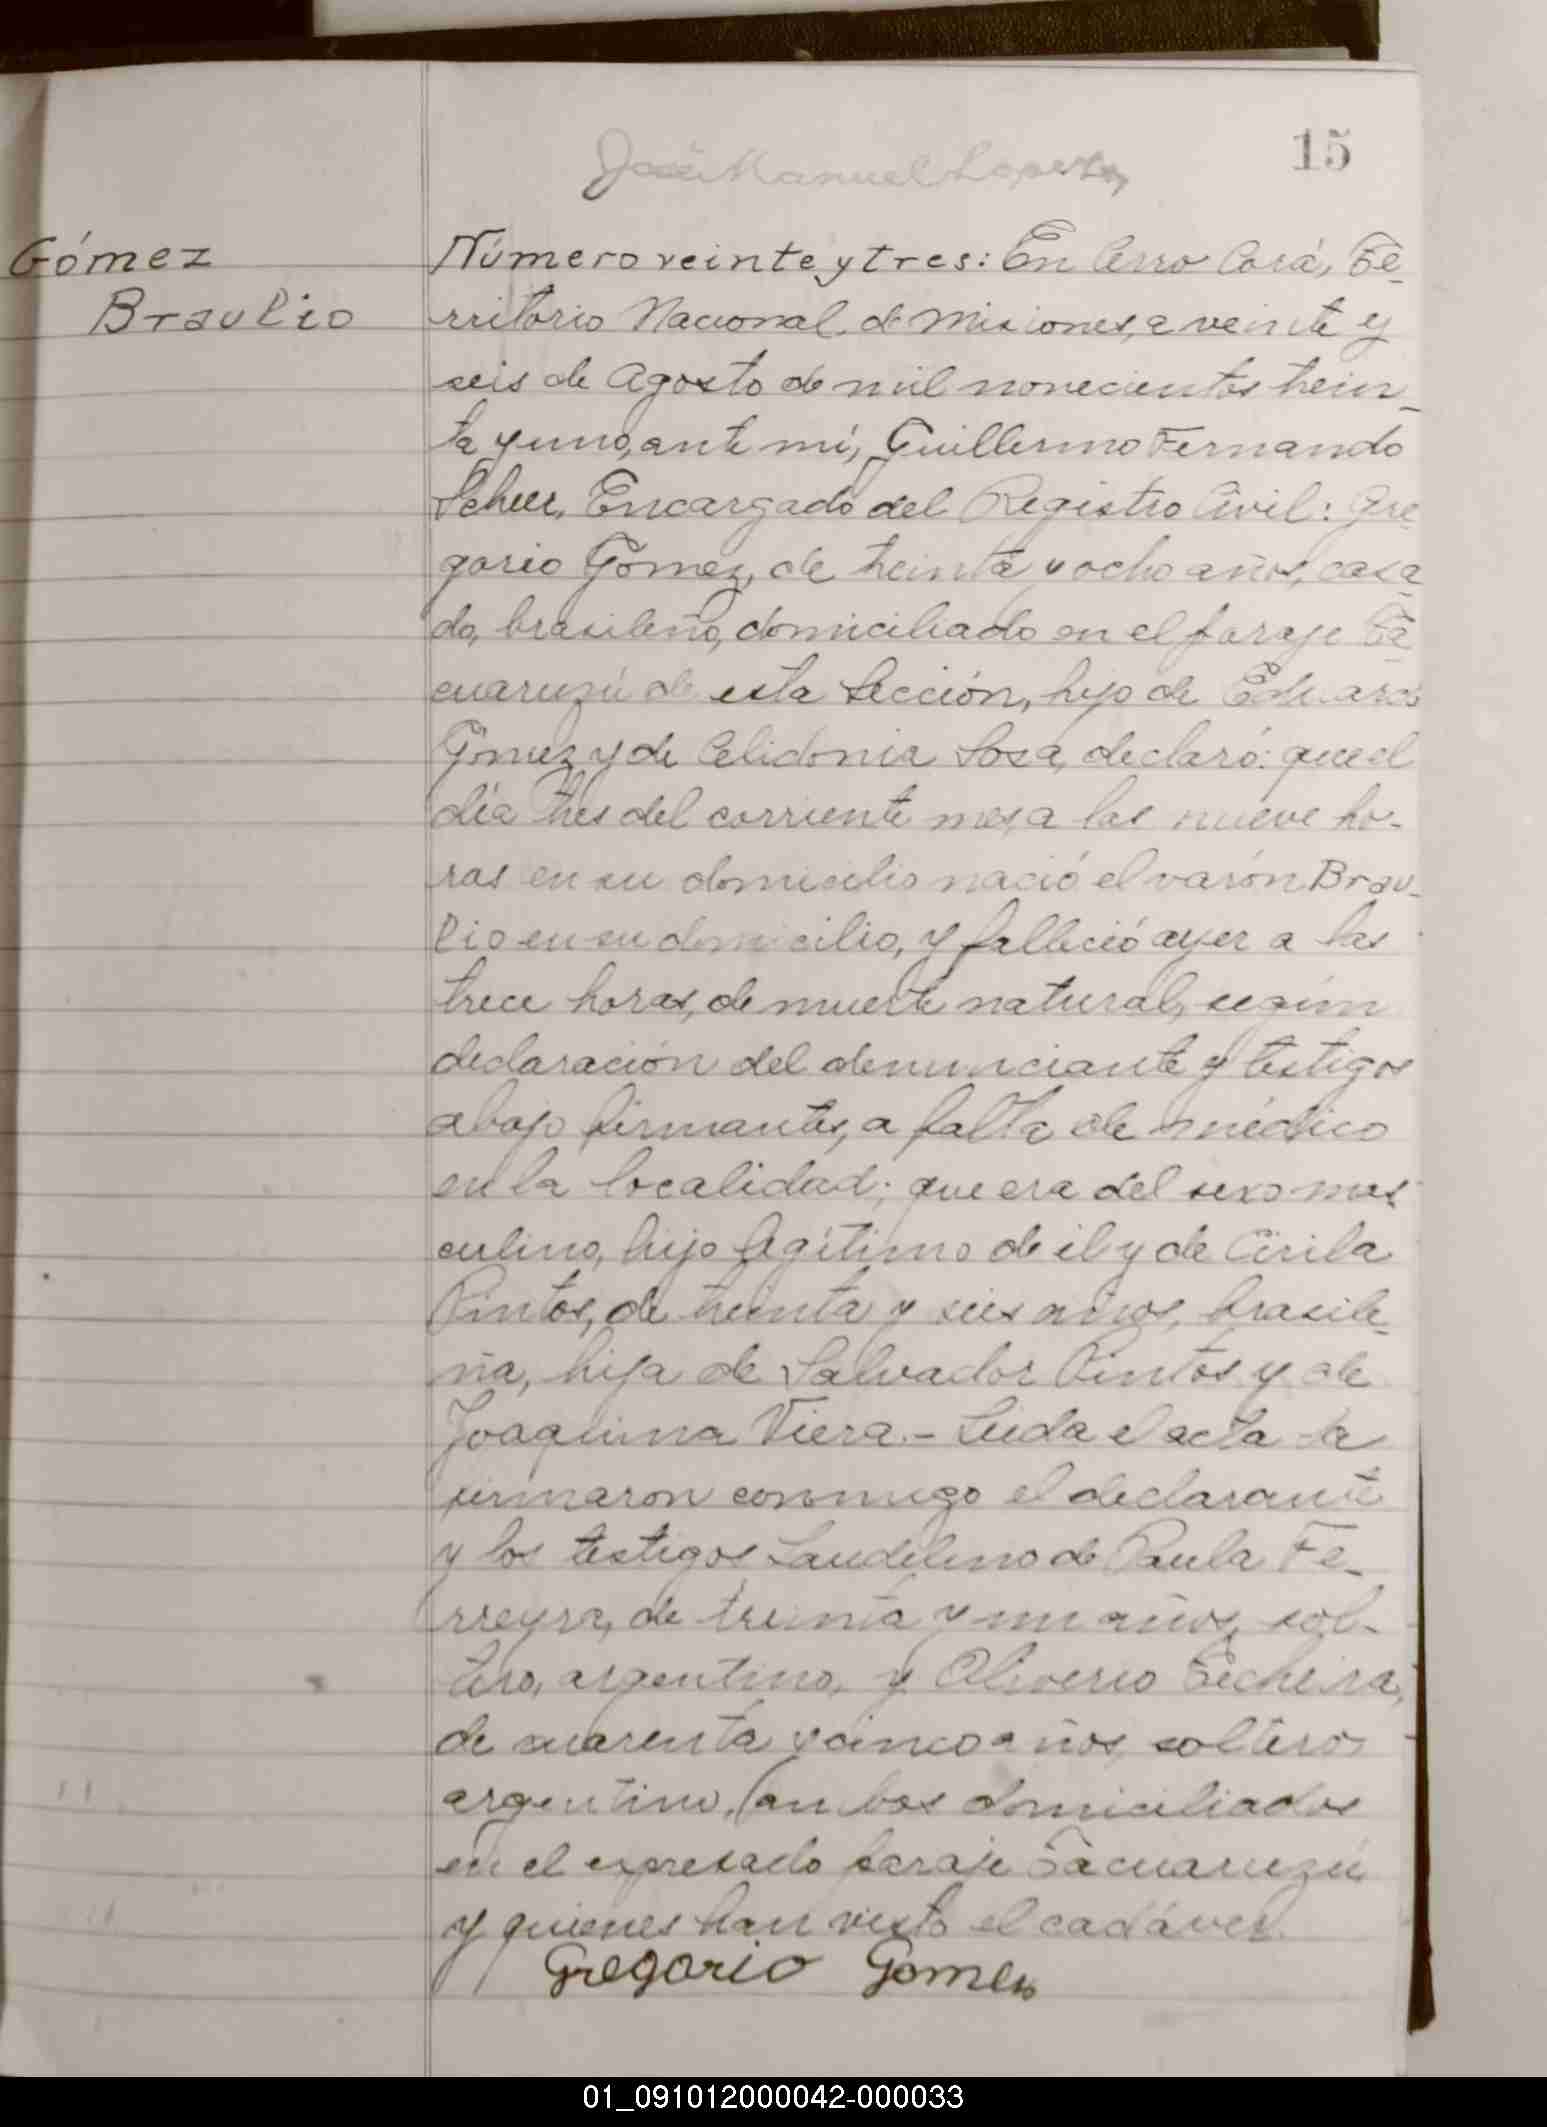 15
José Manuel Lopez
Gómez
Braulio
Número veinte y tres: En Cerro Corá, Te-
rritorio Nacional de Misiones, a veinte y
seis de Agosto de mil novecientos trein-
ta y uno, ante mí, Guillermo Fernando
Scheer, Encargado del Registro Civil: Gre-
gorio Gómez, de treinta y ocho años, casa-
do, brasileño, domiciliado en el paraje Ta-
cuaruzú de esta Sección, hijo de Eduardo
Gómez y de Celidonia Sosa, declaró: que el
día tres del corriente mes, a las nueve ho-
ras en su domicilio nació el varón Brau-
lio en su domicilio, y falleció ayer a las
trece horas, de muerte natural, según
declaración del denunciante y testigos
abajo firmantes, a falta de médico
en la localidad; que era del sexo mas-
culino, hijo legítimo de él y de Cirila
Pintos, de treinta y seis años, brasile-
ña, hija de Salvador Pintos y de
Joaquina Viera.- Leída el acta la
firmaron conmigo el declarante
y los testigos Laudelino de Paula Fe-
rreyra, de treinta y un años, sol-
tero, argentino, y Oliverio Techeira,
de cuarenta y cinco años, soltero
argentino, (ambos domiciliados
en el expresado paraje Tacuaruzú
y quienes han visto el cadáver.
Gregorio Gomez
01_091012000042-000033